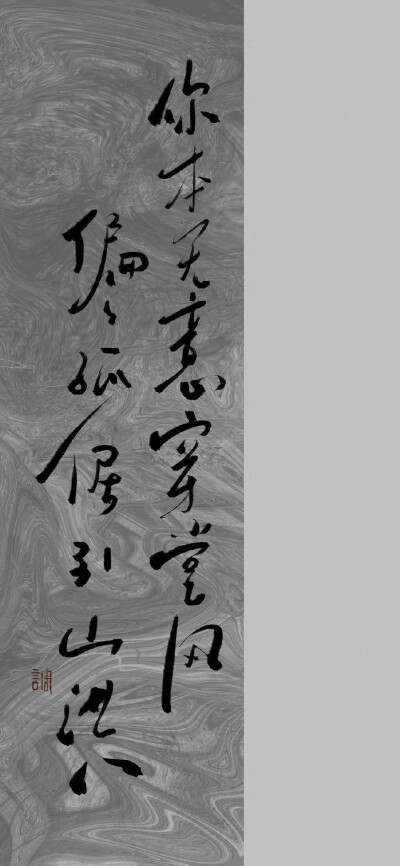 你本无意穿堂风
偏々孤倨引山洪